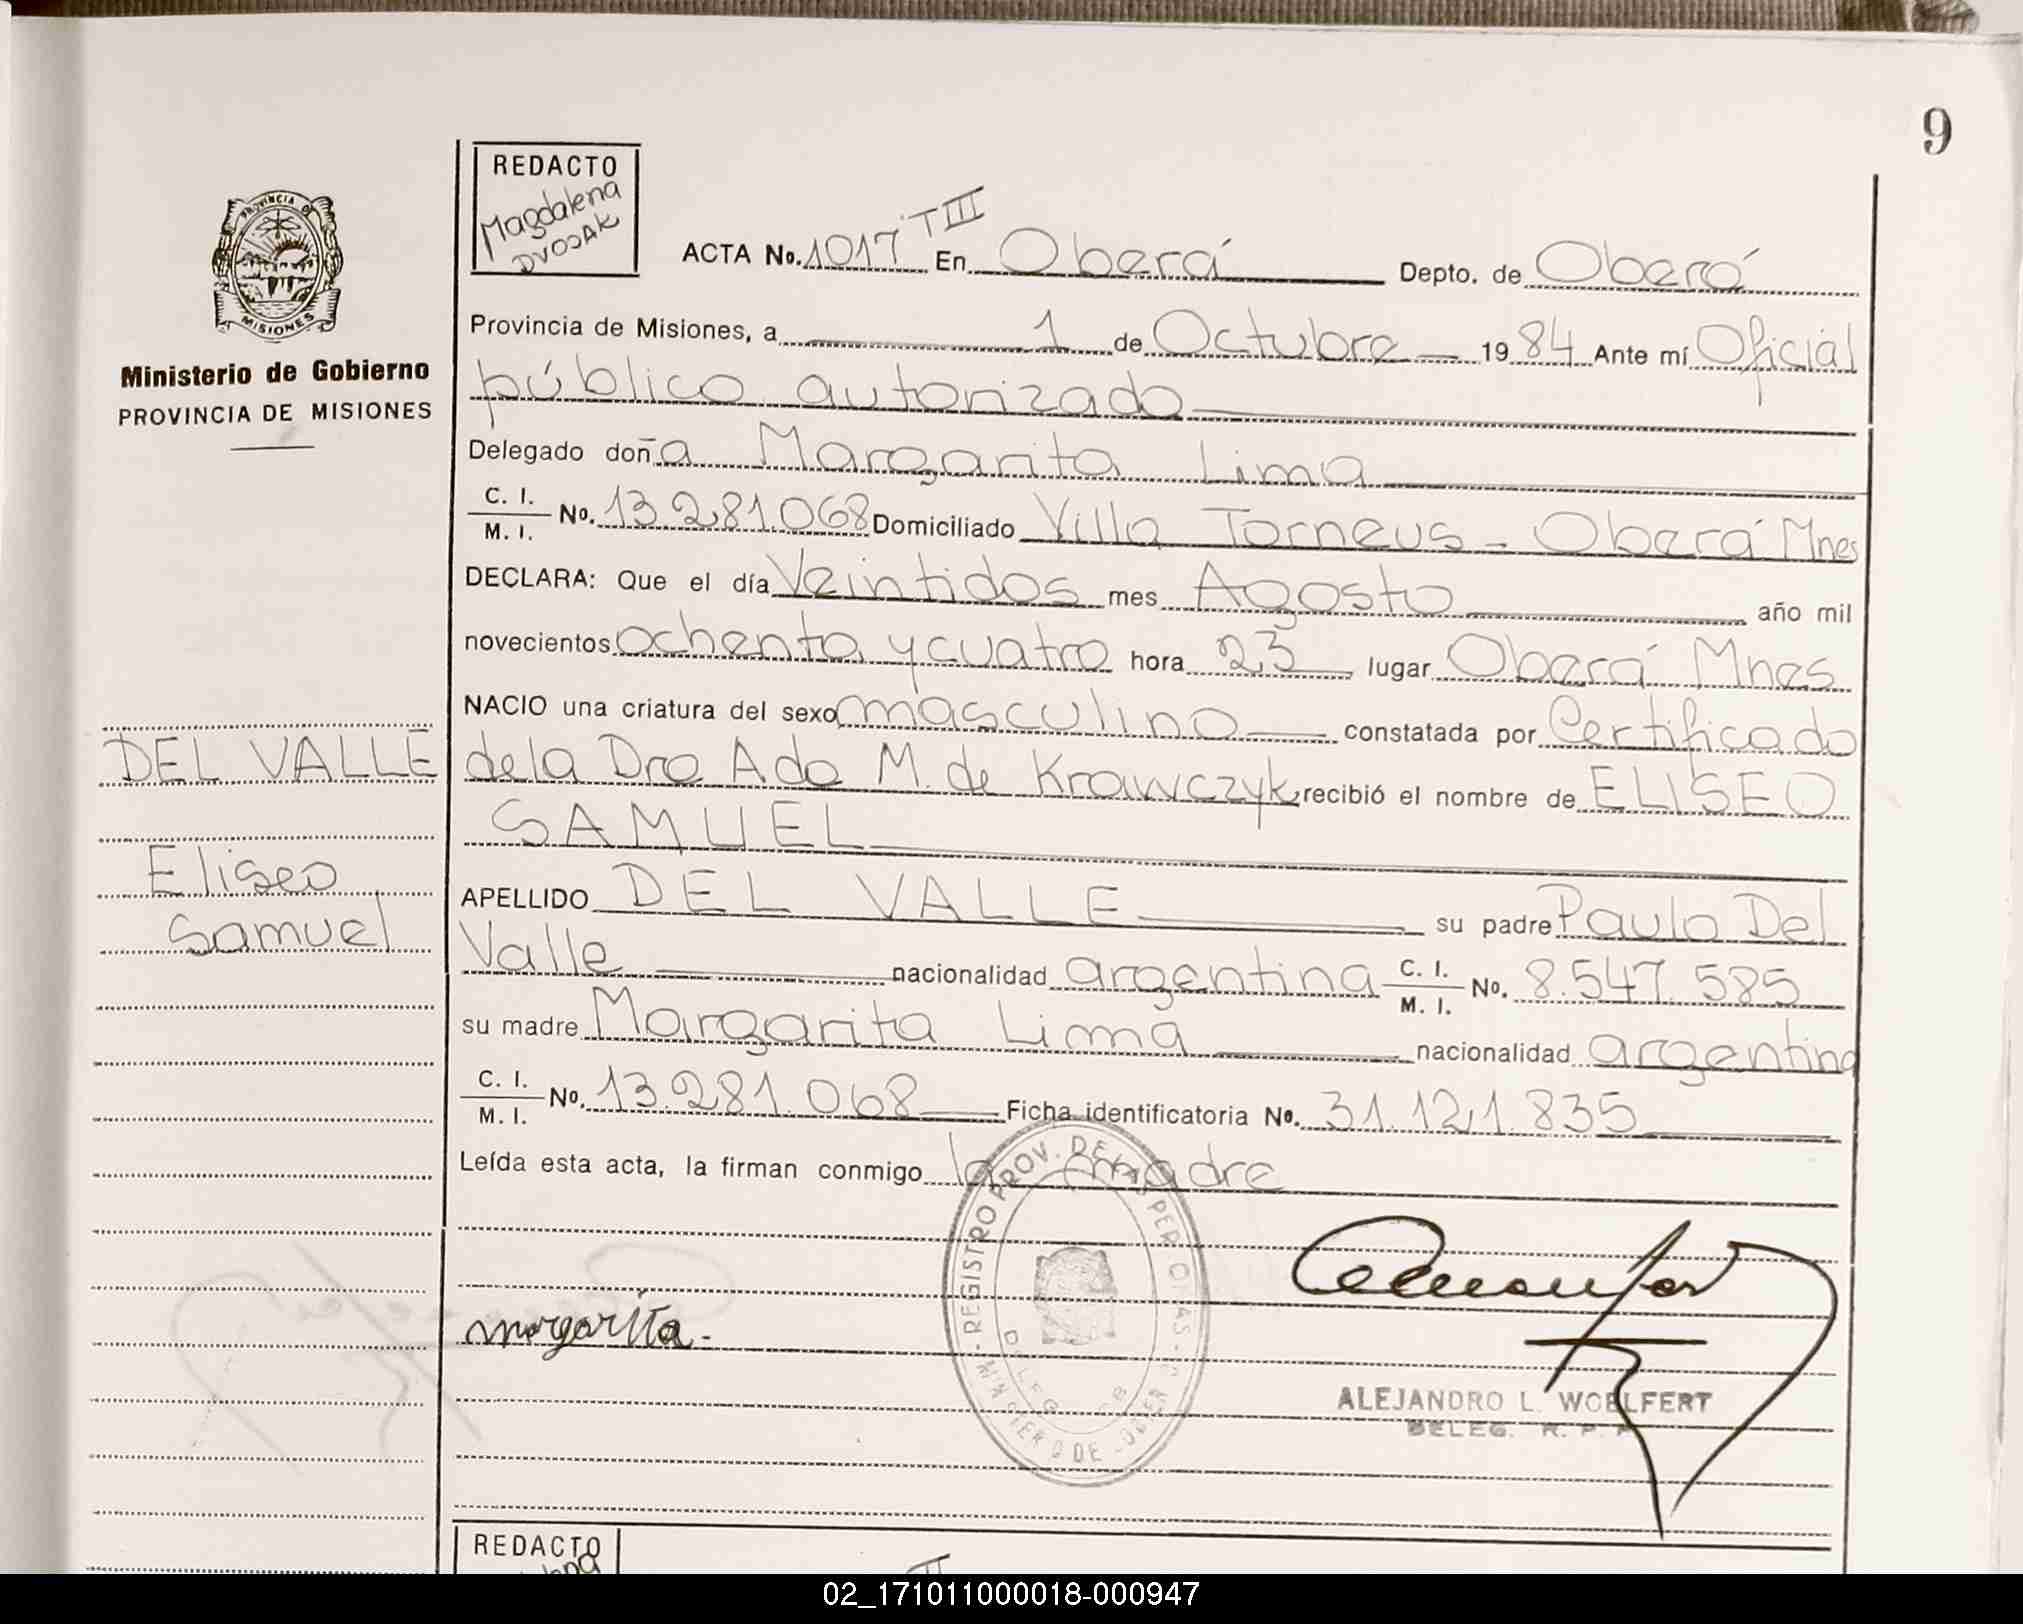 9
REDACTO
Magdalena
DVOJAK
PROVINCIA DE
MISIONES
Ministerio de Gobierno
PROVINCIA DE MISIONES
ACTA No. 1017 TIII En Oberá Depto. de Oberá
Provincia de Misiones, a 1 de Octubre 1984 Ante mí Oficial
público autorizado
Delegado doña Margarita Lima
C. I. M. I. No. 13.281.068 Domiciliado Villa Torneus - Oberá Mnes
DECLARA: Que el día Veintidos mes Agosto año mil
novecientos ochenta y cuatro hora 23 lugar Oberá Mnes
NACIO una criatura del sexo masculino constatada por Certificado
de la Dra Ada M. de Krawczyk recibió el nombre de ELISEO
SAMUEL
APELLIDO DEL VALLE su padre Paulo Del
Valle nacionalidad argentina C. I. M. I. No. 8.547.585
su madre Margarita Lima nacionalidad argentina
C. I. M. I. No. 13.281.068 Ficha identificatoria No. 31.121.835
Leída esta acta, la firman conmigo la madre
DEL VALLE
Eliseo
Samuel
margarita.
REGISTRO PROV. DE LAS PERSONAS
ALEJANDRO L. WOELFERT
DELEG. R. P. P.
REDACTO
02_171011000018-000947